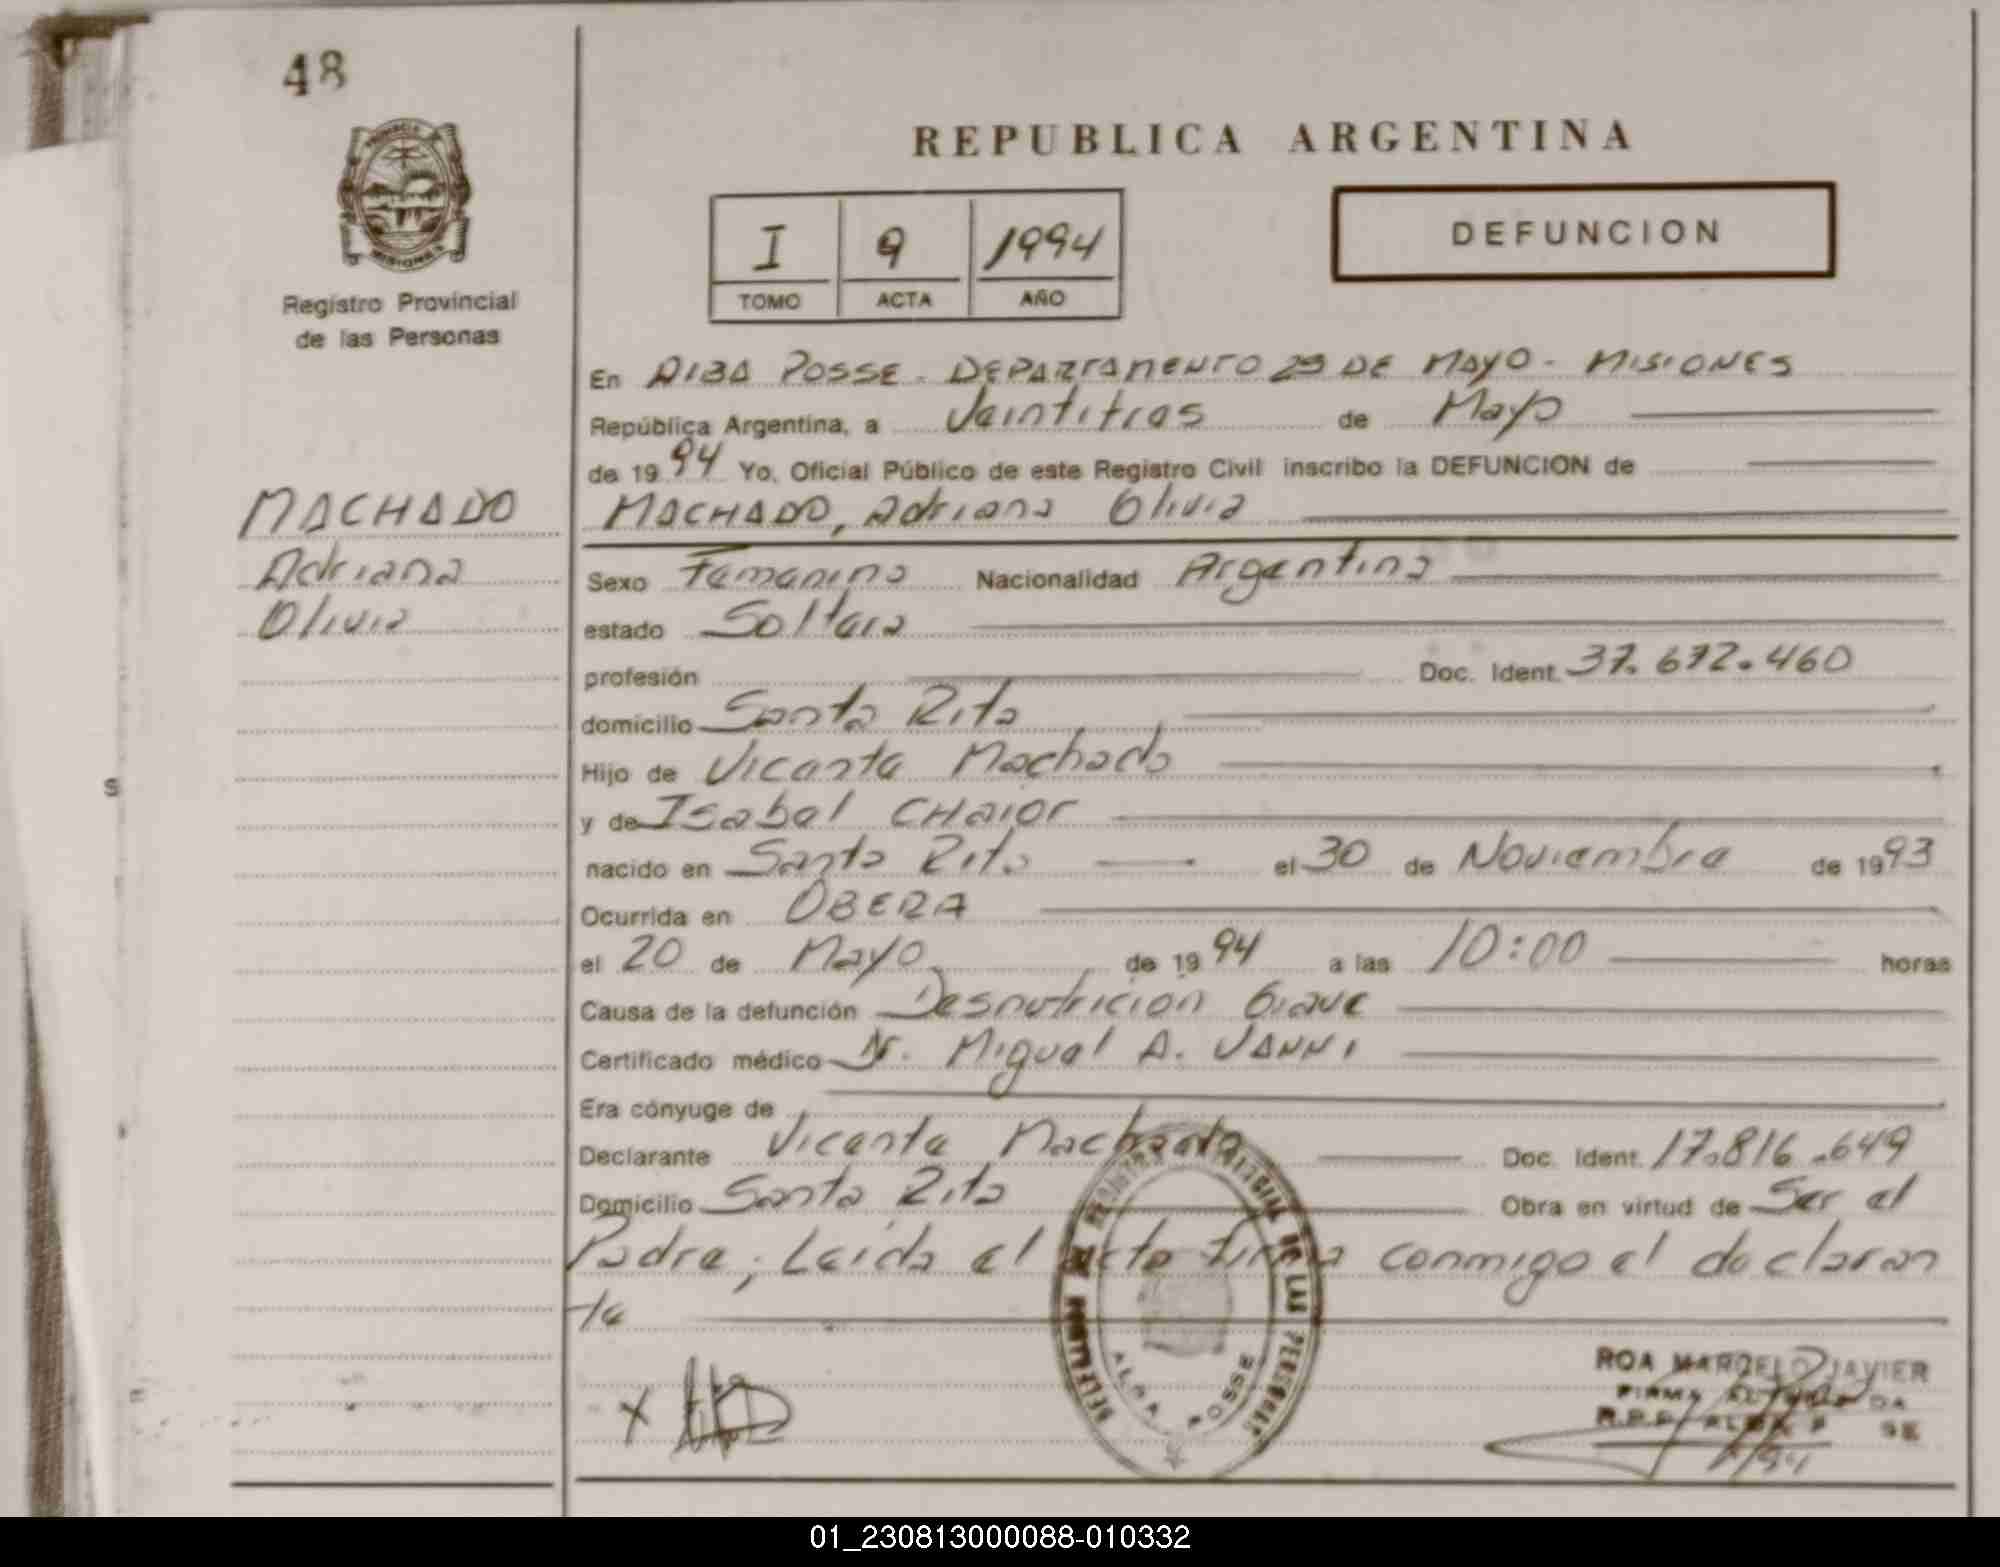 48
REPUBLICA ARGENTINA
MISIONES
Registro Provincial
de las Personas
I 9 1994
TOMO ACTA AÑO
DEFUNCION
En ALBA POSSE - DEPARTAMENTO 25 DE MAYO - MISIONES
República Argentina, a Veintitres de Mayo
de 1994 Yo, Oficial Público de este Registro Civil inscribo la DEFUNCION de
MACHADO, Adriana Olivia
MACHADO
Adriana
Olivia
Sexo Femenino Nacionalidad Argentina
estado Soltera
profesión Doc. Ident. 37.672.460
domicilio Santa Rita
Hijo de Vicente Machado
y de Isabel CHAIOR
nacido en Santa Rita el 30 de Noviembre de 1993
Ocurrida en OBERA
el 20 de Mayo de 1994 a las 10:00 horas
Causa de la defunción Desnutricion Grave
Certificado médico Dr. Miguel A. VANNI
Era cónyuge de
Declarante Vicente Machado Doc. Ident. 17.816.649
Domicilio Santa Rita Obra en virtud de Ser el
Padre; Leida el acta firma conmigo el declaran
te
X
ALBA POSSE
ROA MARCELO JAVIER
FIRMA AUTORIZADA
01_230813000088-010332